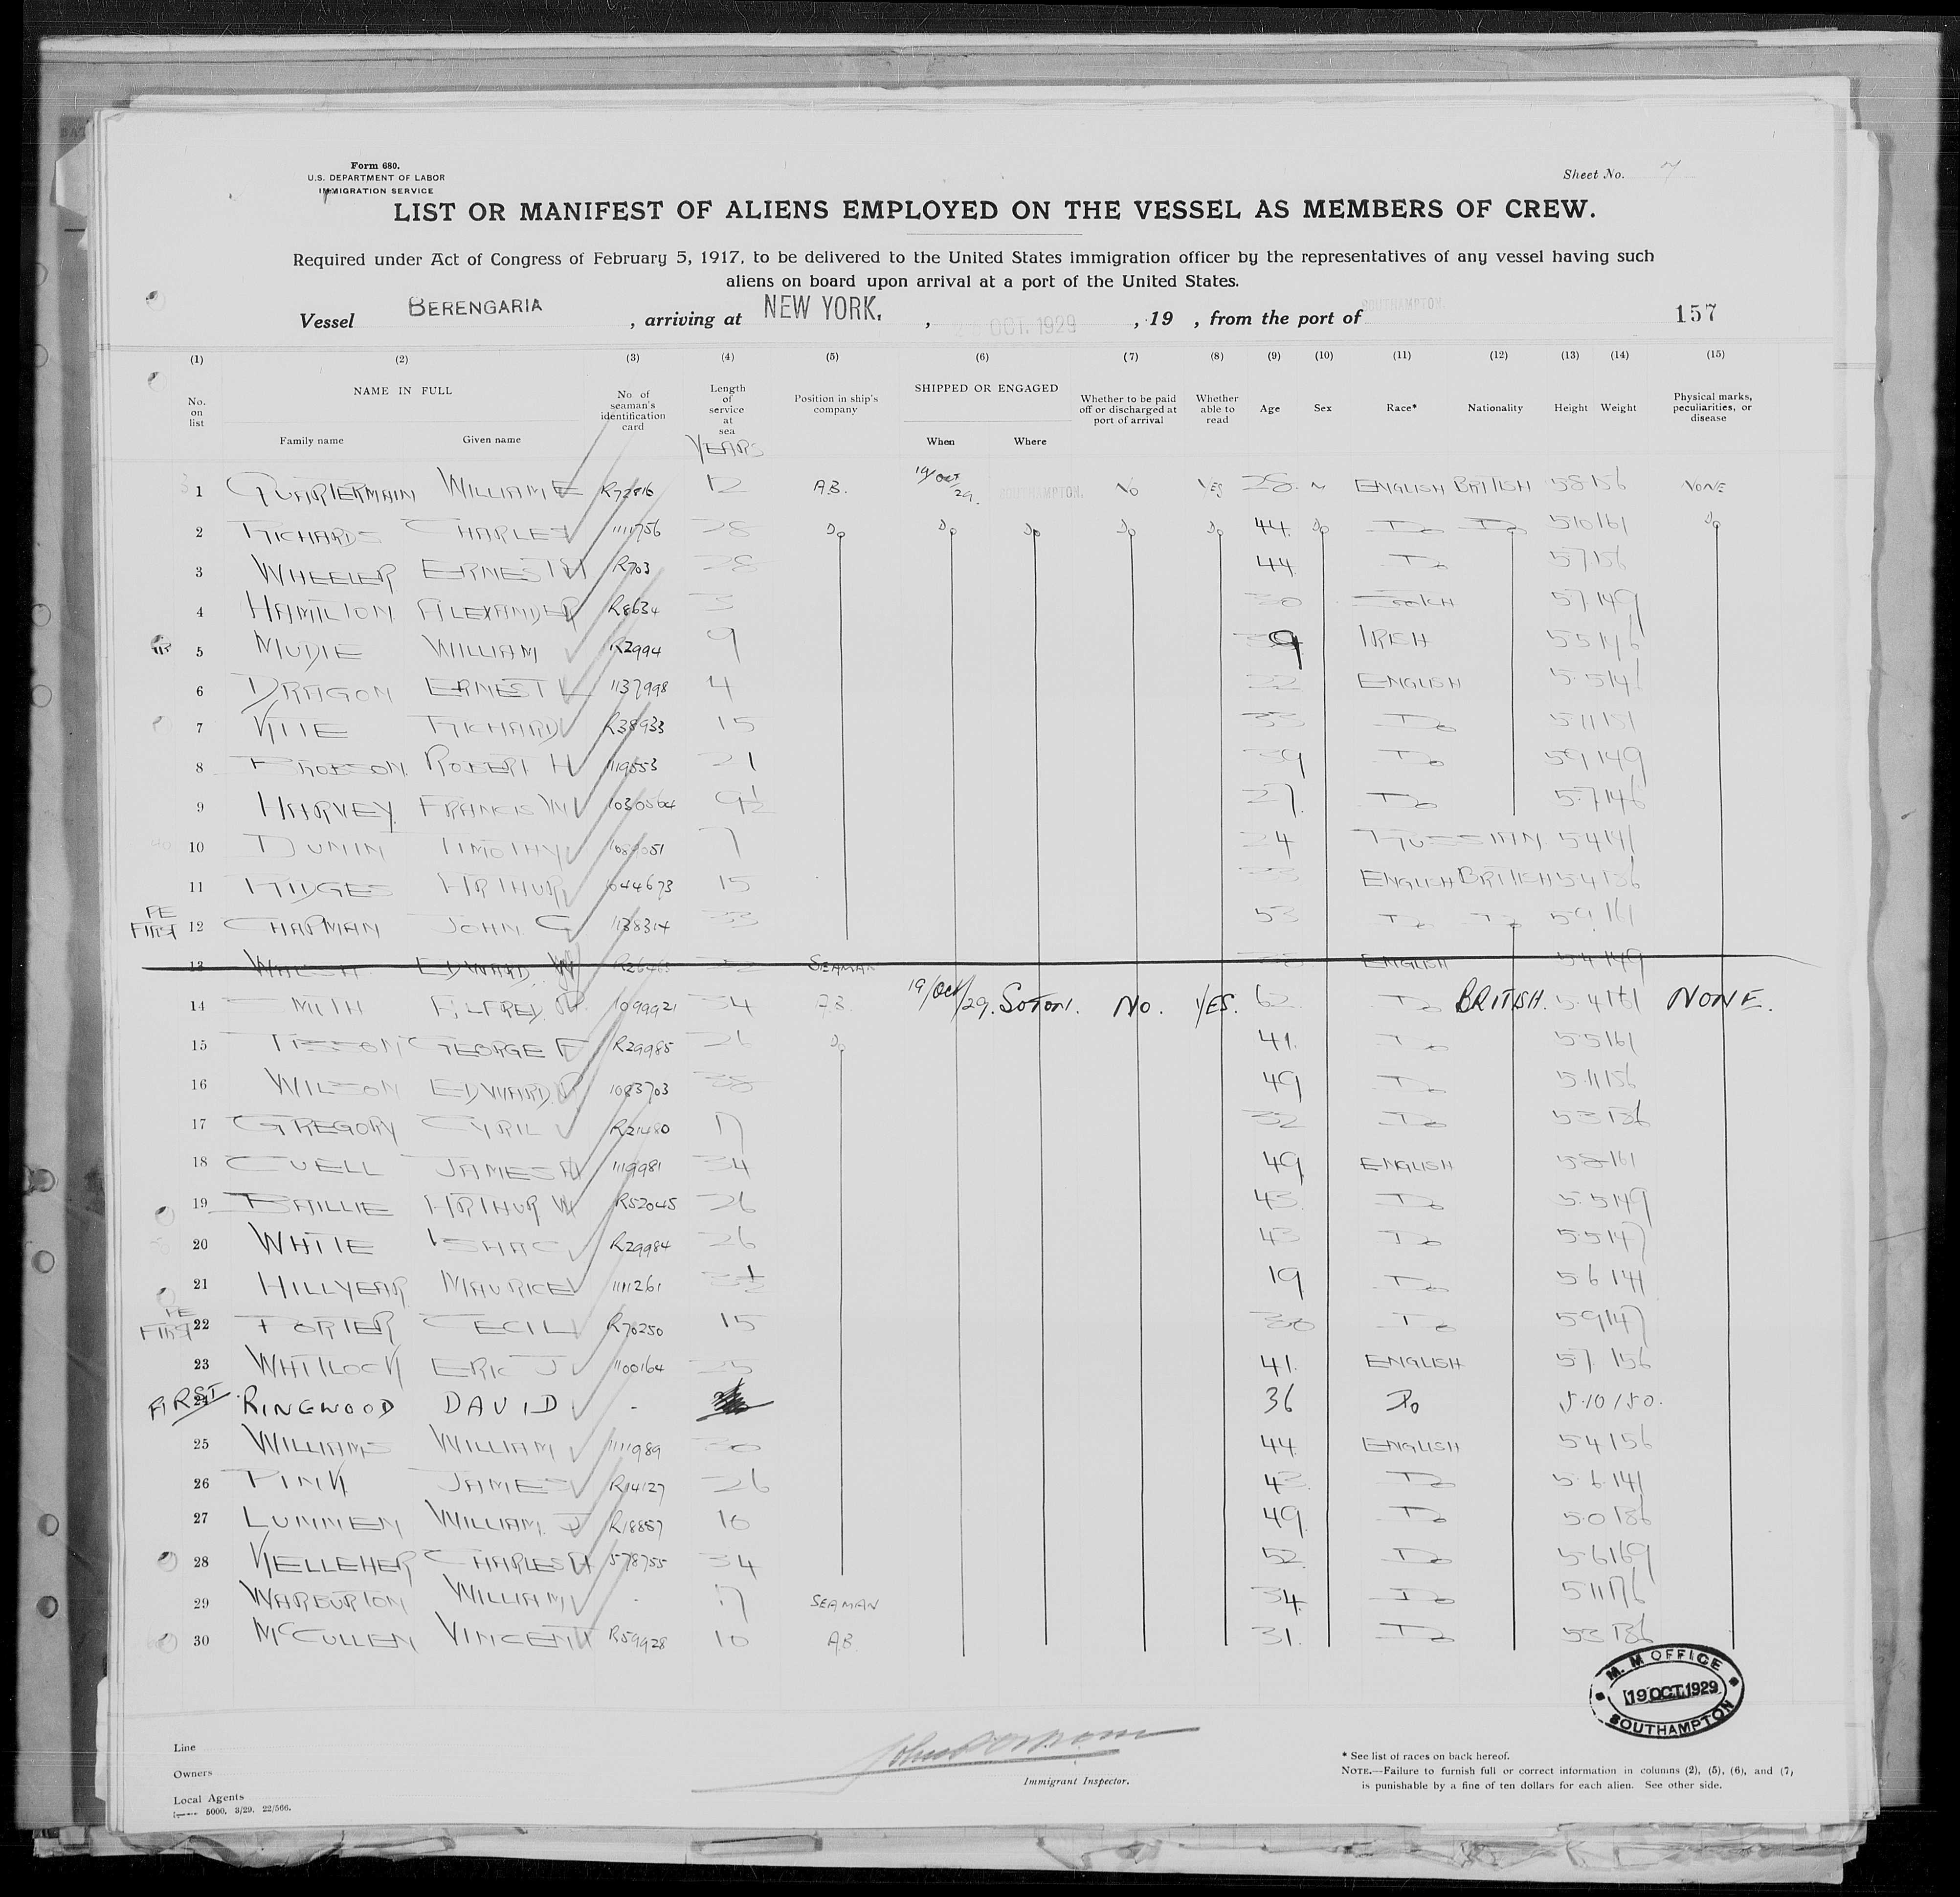 Form 680.
U.S. DEPARTMENT OF LABOR
IMMIGRATION SERVICE
Sheet No. 7
LIST OR MANIFEST OF ALIENS EMPLOYED ON THE VESSEL AS MEMBERS OF CREW.
Required under Act of Congress of February 5, 1917, to be delivered to the United States immigration officer by the representatives of any vessel having such
aliens on board upon arrival at a port of the United States.
Vessel BERENGARIA , arriving at NEW YORK. , OCT. 1929 , 19 , from the port of SOUTHAMPTON. 157
(1) (2) (3) (4) (5) (6) (7) (8) (9) (10) (11) (12) (13) (14) (15)
No. on list NAME IN FULL Family name Given name No of seaman's identification card Length of service at sea YEARS Position in ship's company SHIPPED OR ENGAGED When Where Whether to be paid off or discharged at port of arrival Whether able to read Age Sex Race* Nationality Height Weight Physical marks, peculiarities, or disease
1 QUARTERMAIN WILLIAM E R72816 12 A.B. 19/Oct 29. SOUTHAMPTON. NO YES 28. M ENGLISH BRITISH 5 8 156 NONE
2 RICHARDS CHARLES 1111756 28 Do Do Do Do Do 44. Do Do Do 5 10 161 Do
3 WHEELER ERNEST W R703 28 44 Do 5 7 156
4 HAMILTON ALEXANDER R8634 3 30 SCOTCH 5 7 149
5 MUDIE WILLIAM R2994 9 IRISH 5 5 146
6 DRAGON ERNEST L 1137998 4 22 ENGLISH 5. 5 146
7 KITE RICHARD R38933 15 33 Do 5 11 151
8 BROBSON ROBERT H 1119553 21 39 Do 5 9 149
9 HARVEY. FRANCIS W 1030564 9½ 27. Do 5.7 146
10 DUNIN TIMOTHY 7 24 RUSSIAN. 5 4 141
11 RIDGES ARTHUR 1044673 15 33 ENGLISH BRITISH 5 4 136
PE
FIRST 12 CHAPMAN JOHN C 1138314 33 53 Do Do 5 9. 161
13 WALSH EDWARD. W SEAMAN ENGLISH 5 4 149
14 SMITH ALFRED. R 1099921 34 A.B. 19/Oct/29. SOTON. NO. YES. 62. Do BRITISH. 5. 4 161 NONE.
15 GEORGE F R29985 26 Do 41. Do 5.5 161
16 WILSON EDWARD. R 1083703 38 49 Do 5.11 156
17 GREGORY CYRIL R21480 17 32 Do 5 3 136
18 CUELL JAMES H 1119981 34 49 ENGLISH 5 8 161
19 BAILLIE ARTHUR W R52045 26 43. Do 5. 5 149
20 WHITE ISAAC R29984 26 43 Do 5.5 147
21 HILLYEAR MAURICE 1111261 3½ 19 Do 5 6 141
PE
FIRST 22 PORTER CECIL R70250 15 30 Do 5 9 147
23 WHITLOCK ERIC J 1100164 25 41. ENGLISH 5 7. 156
FIRST 24 RINGWOOD DAVID - 36 Do 5.10 150.
25 WILLIAMS WILLIAM 1111989 30 44 ENGLISH 5 4 156
26 PINK JAMES R14127 26 43 Do 5. 6. 141
27 LUMMEN WILLIAM. J R18857 10 49. Do 5.0 136
28 KELLEHER CHARLES H 578755 34 52. Do 5.6 169
29 WARBURTON WILLIAM - 17 SEAMAN 34. Do 5 11 176
30 McCULLEN VINCENT R59928 10 A.B. 31. Do 5 3 136
M. M OFFICE
19 OCT. 1929
SOUTHAMPTON
Line
Owners
Local Agents
5000. 3/29. 22/566.
Immigrant Inspector.
* See list of races on back hereof.
NOTE.—Failure to furnish full or correct information in columns (2), (5), (6), and (7)
is punishable by a fine of ten dollars for each alien. See other side.